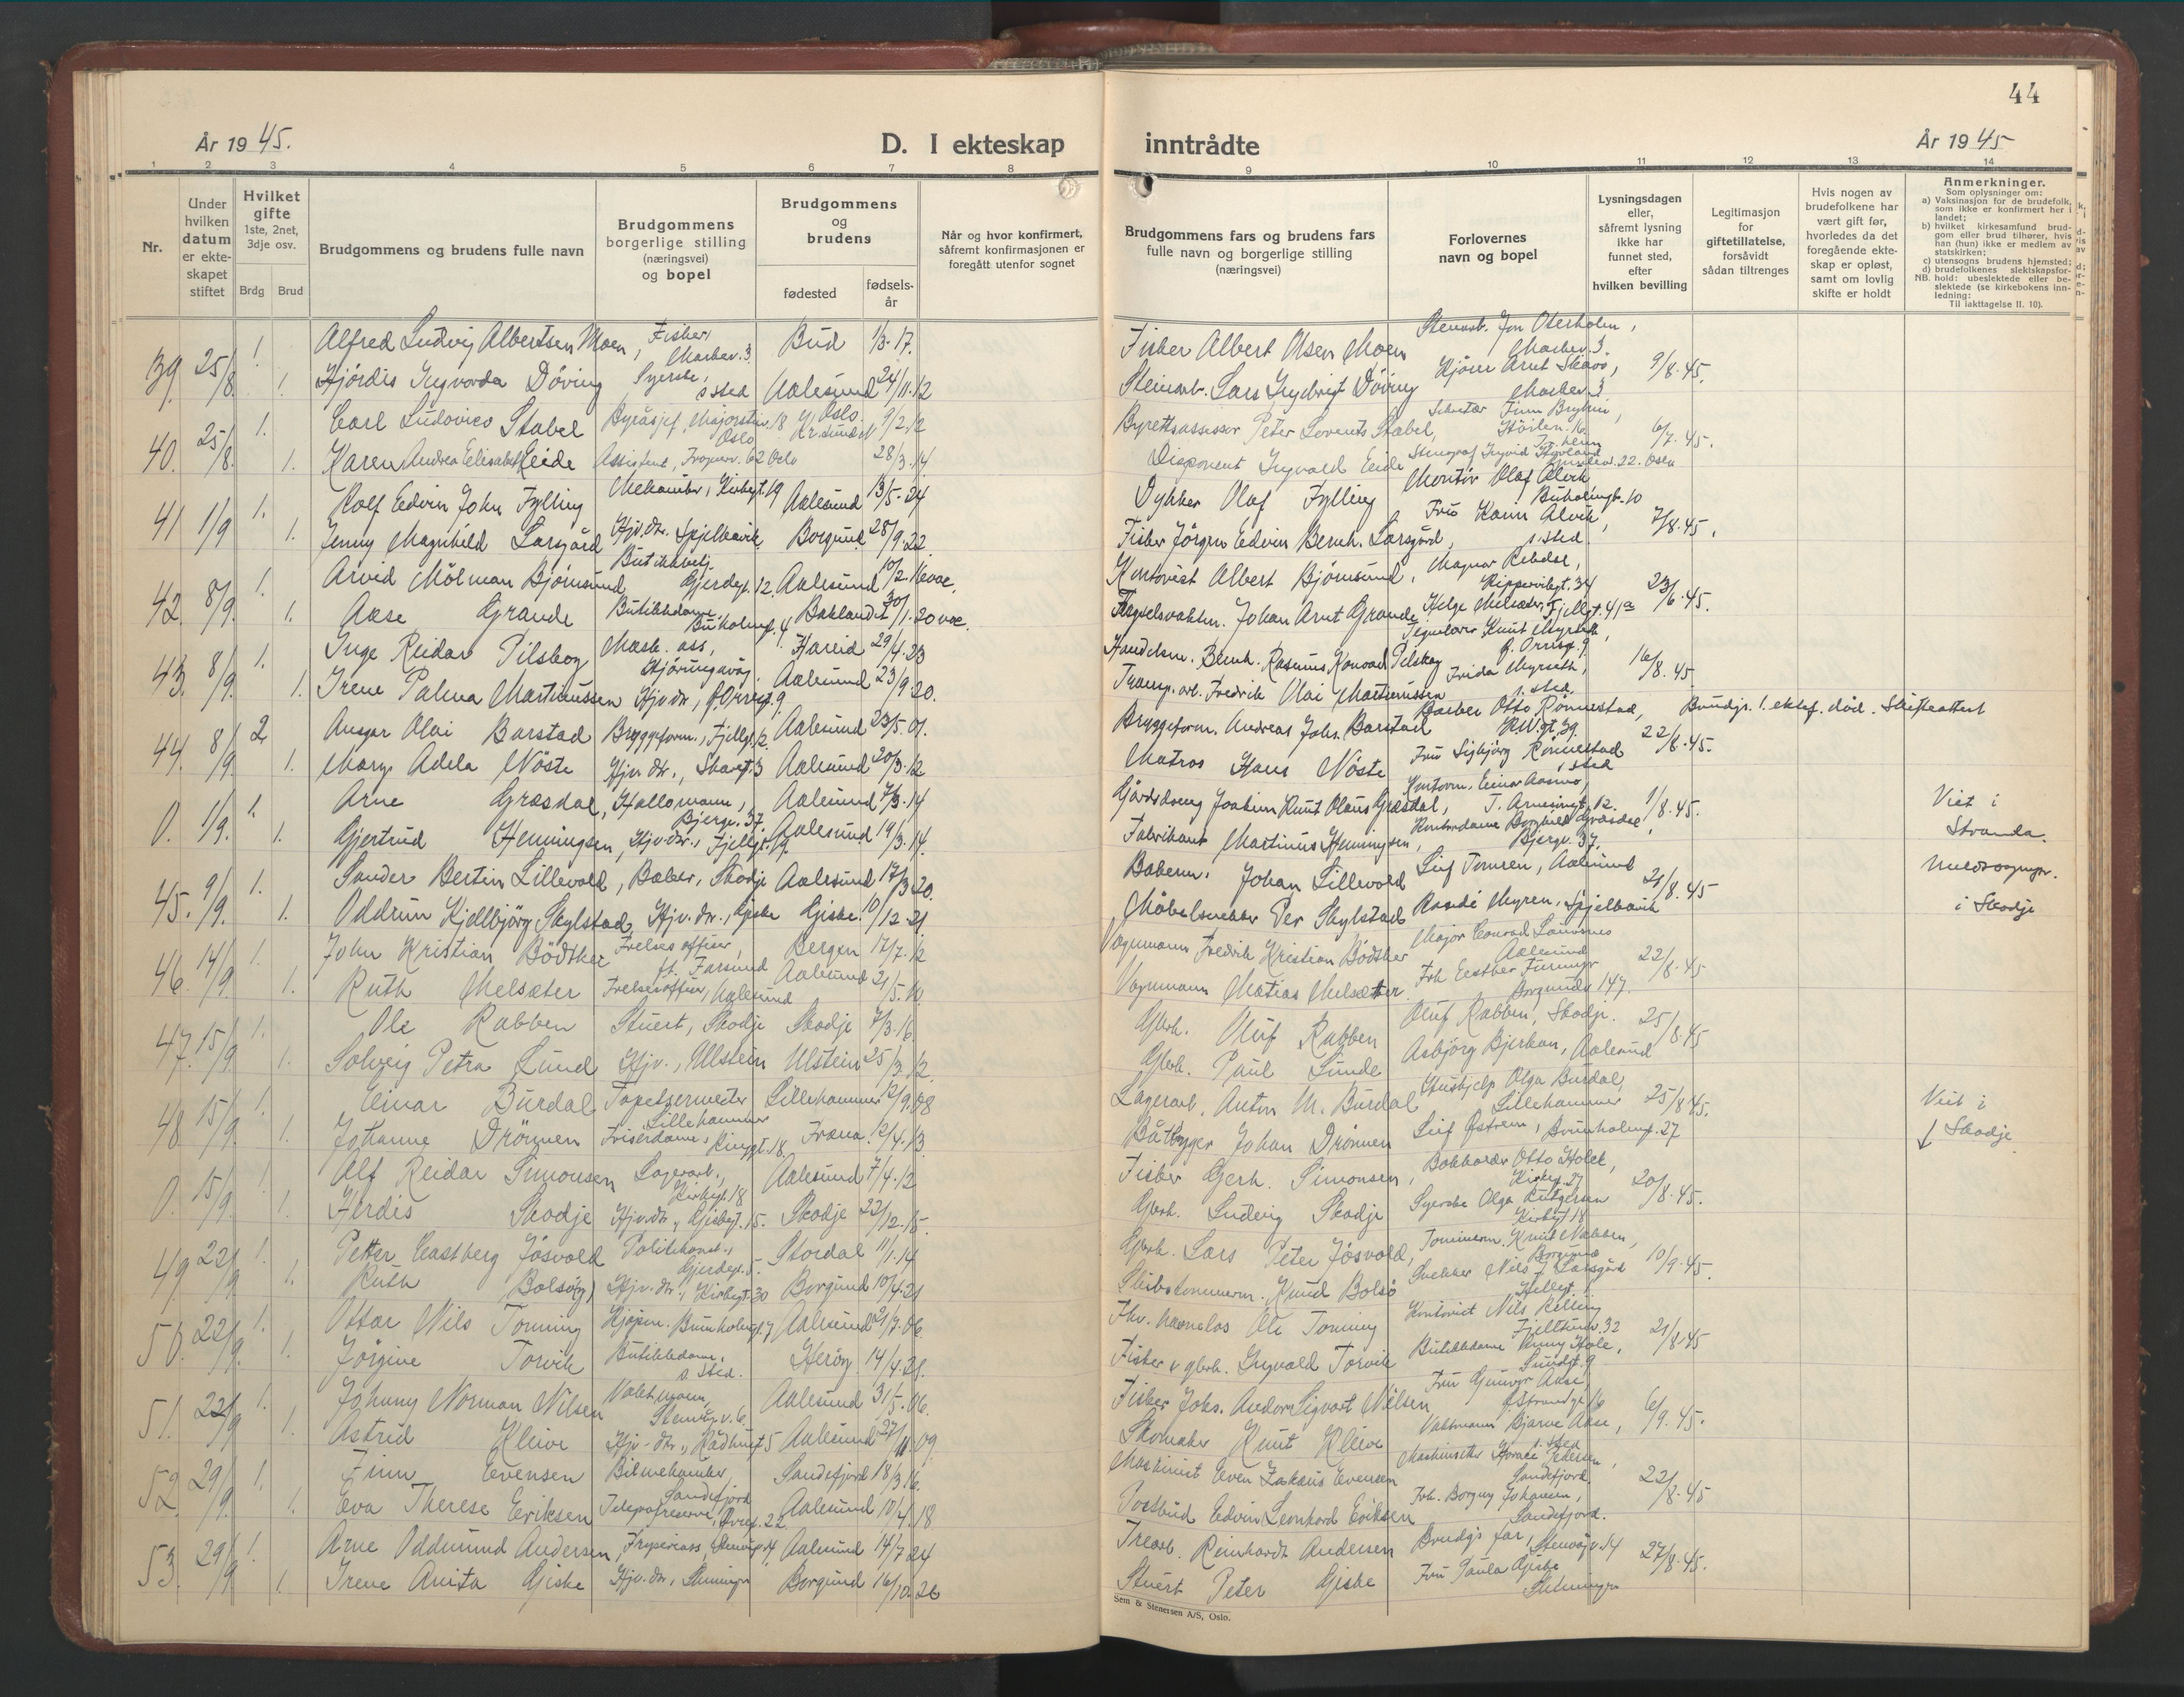 44
År 1945.
D. I ekteskap inntrådte
År 1945
1 2 3 4 5 6 7 8 9 10 11 12 13 14
Nr.
Under hvilken datum er ekteskapet stiftet
Hvilket gifte 1ste, 2net, 3dje osv.
Brdg Brud
Brudgommens og brudens fulle navn
Brudgommens borgerlige stilling (næringsvei) og bopel
Brudgommens og brudens
fødested
fødselsår
Når og hvor konfirmert, såfremt konfirmasjonen er foregått utenfor sognet
Brudgommens fars og brudens fars fulle navn og borgerlige stilling (næringsvei)
Forlovernes navn og bopel
Lysningsdagen eller, såfremt lysning ikke har funnet sted, efter hvilken bevilling
Legitimasjon for giftetillatelse, forsåvidt sådan tiltrenges
Hvis nogen av brudefolkene har vært gift før, hvorledes da det foregående ekteskap er opløst, samt om lovlig skifte er holdt
Anmerkninger.
Som oplysninger om:
a) Vaksinasjon for de brudefolk, som ikke er konfirmert her i landet;
b) hvilket kirkesamfund brudgom eller brud tilhører, hvis han (hun) ikke er medlem av statskirken;
c) utensogns brudens hjemsted;
d) brudefolkenes slektskapsforhold: ubeslektede eller beslektede (se kirkebokens innledning:
NB.
Til iakttagelse II. 10).
39. 25/8. 1. Alfred Ludvig Albertsen Moen, Fisker, Bud 1/3-17. Fisker Albert Olsen Moen Stenarb. Jon Oterholm,
1. Hjördis Ingvarda Döving Syerske, s sted Aalesund 24/11.12 Stenarb. Lars Ingebrigt Döving 9/8.45.
40. 25/8. 1. Carl Ludovico Stabel Byråsjef, Majorstuv. 18 Oslo 9/2.12 Byrettsassessor Peter Lorents Stabel,
1. Karen Andrea Elisabet Eide Assistent, Frognerv. 62 Oslo Kr.sund N 28/3.14 Disponent Ingvald Eide 6/7.45.
41 1/9 1. Rolf Edvin John Fylling Mekaniker, Kirkegt. 19 Aalesund 13/5.24 Dykker Olaf Fylling Montör Olaf Alvik Buholmgt. 10
1. Jenny Magnhild Larsgård Hjv. dtr. Spjelkavik. Borgund 28/9.22. Fisker Jörgen Edvin Bernh. Larsgård, Fru Karin Alvik, s. sted 7/8.45.
42. 8/9. 1. Arvid Molman Björnsund Butikkbetj. Gjerdegt. 12. Aalesund 10/2.16 vac. Kontorist Albert Björnsund,
1. Aase Grande Butikkdame, Buholmgt. 4 Baklandet 30/1.20 vac. Fengselsvaktm. Johan Arnt Grande Helge Melsæter, Fjellgt. 41a 23/6.45.
43. 8/9. 1. Inge Reidar Pilskog Mask. ass, Hjörungavåg. Hareid 29/4.23 Handelsm. Bernh. Rasmus Konrad Pilskog
1. Irene Palma Martinussen Hjv dtr, Ö. Orrest. 9. Aalesund 23/9.20. Transp. arb. Fredrik Olai Martinussen Frida Myrseth, s. sted. 16/8.45
44. 8/9. 2. Ansgar Olai Barstad Bryggeform., Fjellgt. 12. Aalesund 23/5.01. Bryggeform. Andreas Johs. Barstad Barber Otto Rönnestad, Brudgs. 1. ektef. död. Skifteattest
1. Mary Adela Nöste Hjv. dtr., Skaregt. 3 Aalesund 20/3.12 Matros Hans Nöste Fru Sigbjörg Rönnestad s sted 22/8.45.
0. 1/9. 1. Arne Græsdal, Hallomann, Bjergv. 37. Aalesund 7/3.14 Gårdsdreng Joakim Knut Olaus Græsdal, Kontorm. Einar Aasmo, Viet i
1. Gjertrud Henningsen, Hjv.dtr., Fjellgt. Aalesund 19/3.14. Fabrikant Martinus Henningsen, Kontordame Borghild Græsdal, Bjergv. 37. 1/8.45. Stranda.
45. 9/9. 1. Sander Bertin Lillevold, Baker, Skodje Aalesund 17/3 20. Bakerm. Johan Lillevold Leif Tomren, Aalesund
1. Oddrun Kjellbjörg Skylstad, Hjv. dtr., Giske Giske. 10/12.21. Möbelsnekker Per Skylstad Randi Myren, Spjelkavik 21/8.45 i Skodje
46. 14/9. 1. John Kristian Bödtker Frelsesoffiser, ft. Farsund Bergen 17/7.12 Vognmann Fredrik Kristian Bödtker Aalesund
1. Ruth Melsæter Frelsesoffiser, Aalesund Aalesund 21/5.10. Vognmann Matias Melsæter. 22/8.45 Borgundv 147.
47. 15/9. 1. Ole Rabben Stuert, Skodje Skodje 7/3.16. Gbrk. Oluf Rabben Oluf Rabben, Skodje. 25/8.45
1. Solveig Petra Sund Hjv., Ulstein Ulstein 25/3.12. Gbrk. Paul Sunde Asbjörg Bjerkan, Aalesund
48 15/9. 1. Einar Burdal Tapetsermester Lillehammer Lillehammer 12/9.08 Lagerarb. Anton M. Burdal Hushjelp Olga Burdal, Lillehammer 25/8 45. Viet i
1. Johanne Drönnen Friserdame, Kongegt. 18. Fræna. 12/4.13. Båtbygger Johan Drönnen Leif Östrem, Brunholmgt. 27 Skodje
0. 15/9. 1. Alf Reidar Simonsen Lagerarb., Kirkegt. 18 Aalesund 7/4.12 Fisker Gerh. Simonsen, Bokholder Otto Holek,
1. Herdis Skodje Hjv.dtr., Skodje 22/12.15. Gbrk. Ludvig Skodje Syerske Olga Rutgersen Kirkegt 18 20/8.45.
49 22/9 1. Petter Eastberg Jösvold Politikonst., Gjerdegt. 5. Stordal 11/1.14 Gbrk. Lars Peter Jösvold, Tömmerm. Knut Nakken, Borgund
1. Ruth Bolsöy, Hjv. dtr., Kirkegt. 30 Borgund 10/4.21 Skibstömmerm. Knud Bolsö Snekker Nils J. Larsgård 10/9.45.
50. 22/9. 1. Ottar Nils Torning Kjöpm. Brunholmgt. 7 Aalesund 21/7.06. Fhv. havnelos Ole Torning Kontorist Nils Relling 21/8.45
1. Jörgine Torvik Butikkdame, s sted. Heröy 14/4.28. Fisker & gbrk. Ingvald Torvik Butikkdame Jenny Hole,
51. 22/9 1. Johnny Norman Nilsen Vaktmann, Stenvågv. 6. Aalesund 31/5.06. Fisker Johs. Andor Sigvart Nilsen Fru Gunvor Aase,
1. Astrid Kleive Hjv-dtr., Rådhusgt 5 Aalesund 27/11.09. Skomaker Knut Kleive Vaktmann Bjarne Aase, s. sted 6/9.45.
52. 29/9. 1. Finn Evensen Bilmekaniker, Sandefjord Sandefjord 18/3 16. Maskinist Even Zakæus Evensen Sandefjord 22/8.45
1. Eva Therese Eriksen Telegrafreserve, Aalesund 10/4.18 Postbud Edvin Leonhard Eriksen Frk. Borgny Johansen, Sandefjord.
53. 29/9 1. Arne Oddmund Andersen, Fryseriarb, Stenvågv. 14, Aalesund 14/7 24 Trearb. Reinhardt Andersen Brudg's far, Stenvågv. 14 27/8.45.
1. Irene Anita Giske Hjv. dtr, Borgund 16/10.26 Stuert Peter Giske Fru Paula Giske
Sem & Stenersen A/S, Oslo.